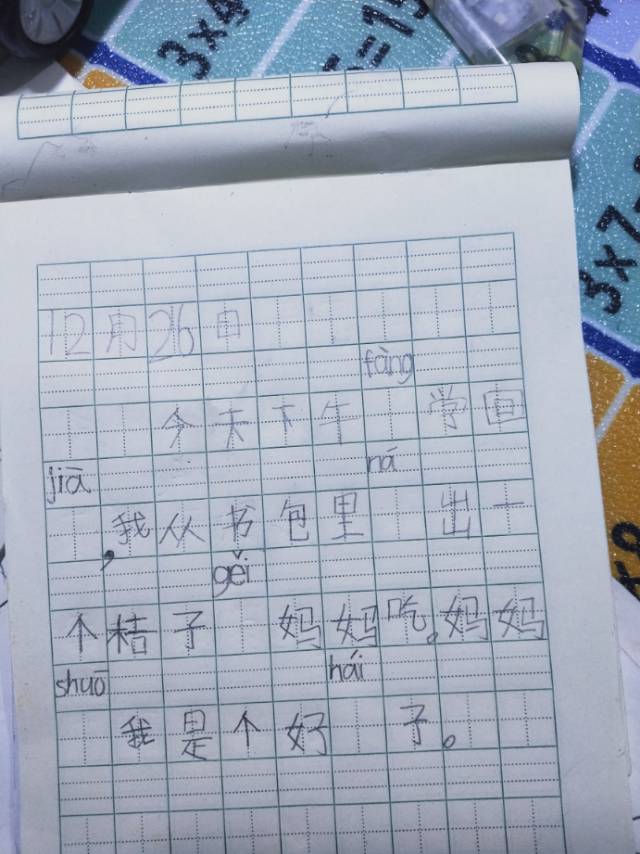 3×4
=15
3×7=
×9
12月26日
fàng
今天下午 学回
jiā ná
,我从书包里 出一
gěi
个桔子 妈妈吃。妈妈
shuō hái
我是个好 子。